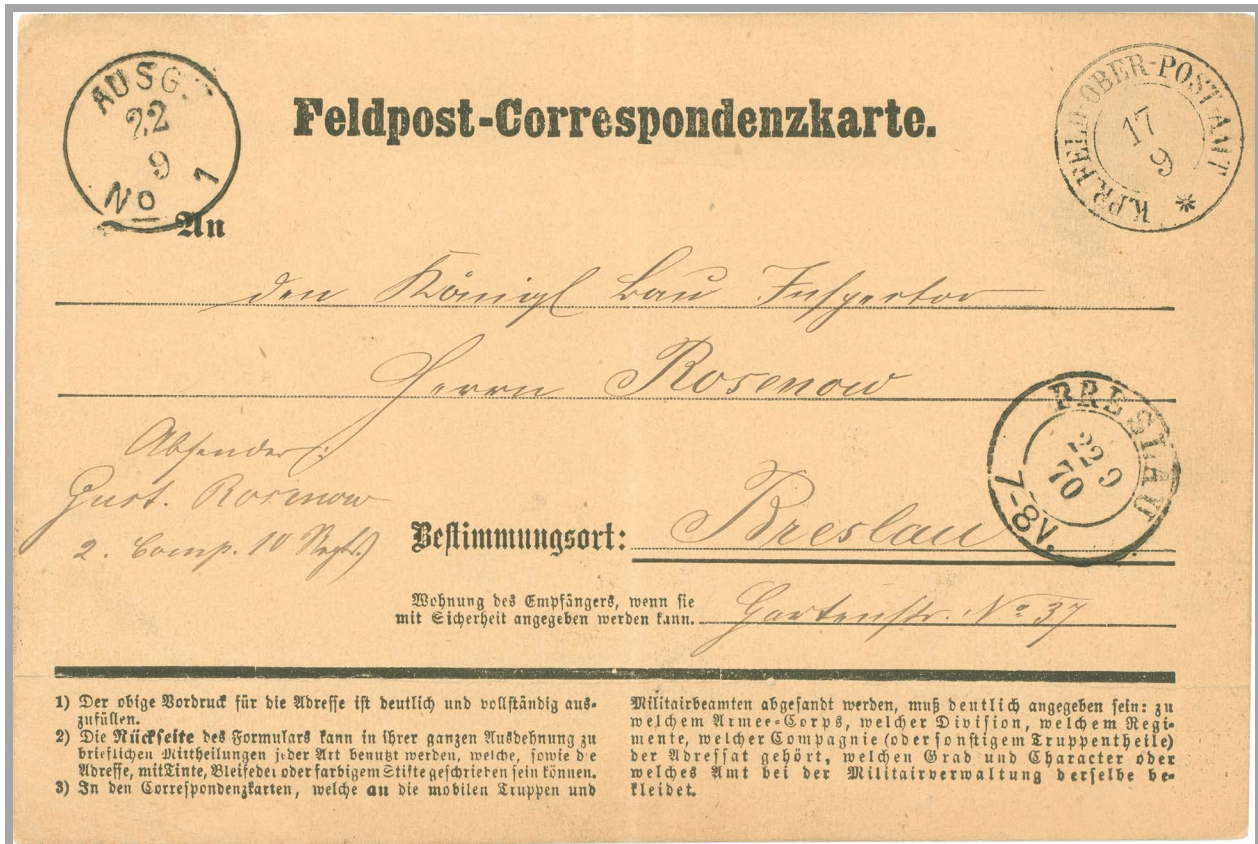 AUSG.
22
9
No 1
Feldpost-Correspondenzkarte.
K.PR.FELD-OBER-POST-AMT
17
9
An
den Königl Bau Inspector
Herrn Rosenow
BRESLAU
22 9
70
7-8V.
Absender:
Gust. Rosenow
2. Comp. 10 Regt.)
Bestimmungsort: Breslau
Wohnung des Empfängers, wenn sie
mit Sicherheit angegeben werden kann. Gartenstr. No 37
1) Der obige Vordruck für die Adresse ist deutlich und vollständig aus-
zufüllen.
2) Die Rückseite des Formulars kann in ihrer ganzen Ausdehnung zu
brieflichen Mittheilungen jeder Art benutzt werden, welche, sowie die
Adresse, mit Tinte, Bleifeder oder farbigem Stifte geschrieben sein können.
3) In den Correspondenzkarten, welche an die mobilen Truppen und
Militairbeamten abgesandt werden, muß deutlich angegeben sein: zu
welchem Armee-Corps, welcher Division, welchem Regi-
mente, welcher Compagnie (oder sonstigem Truppentheile)
der Adressat gehört, welchen Grad und Character oder
welches Amt bei der Militairverwaltung derselbe be-
kleidet.